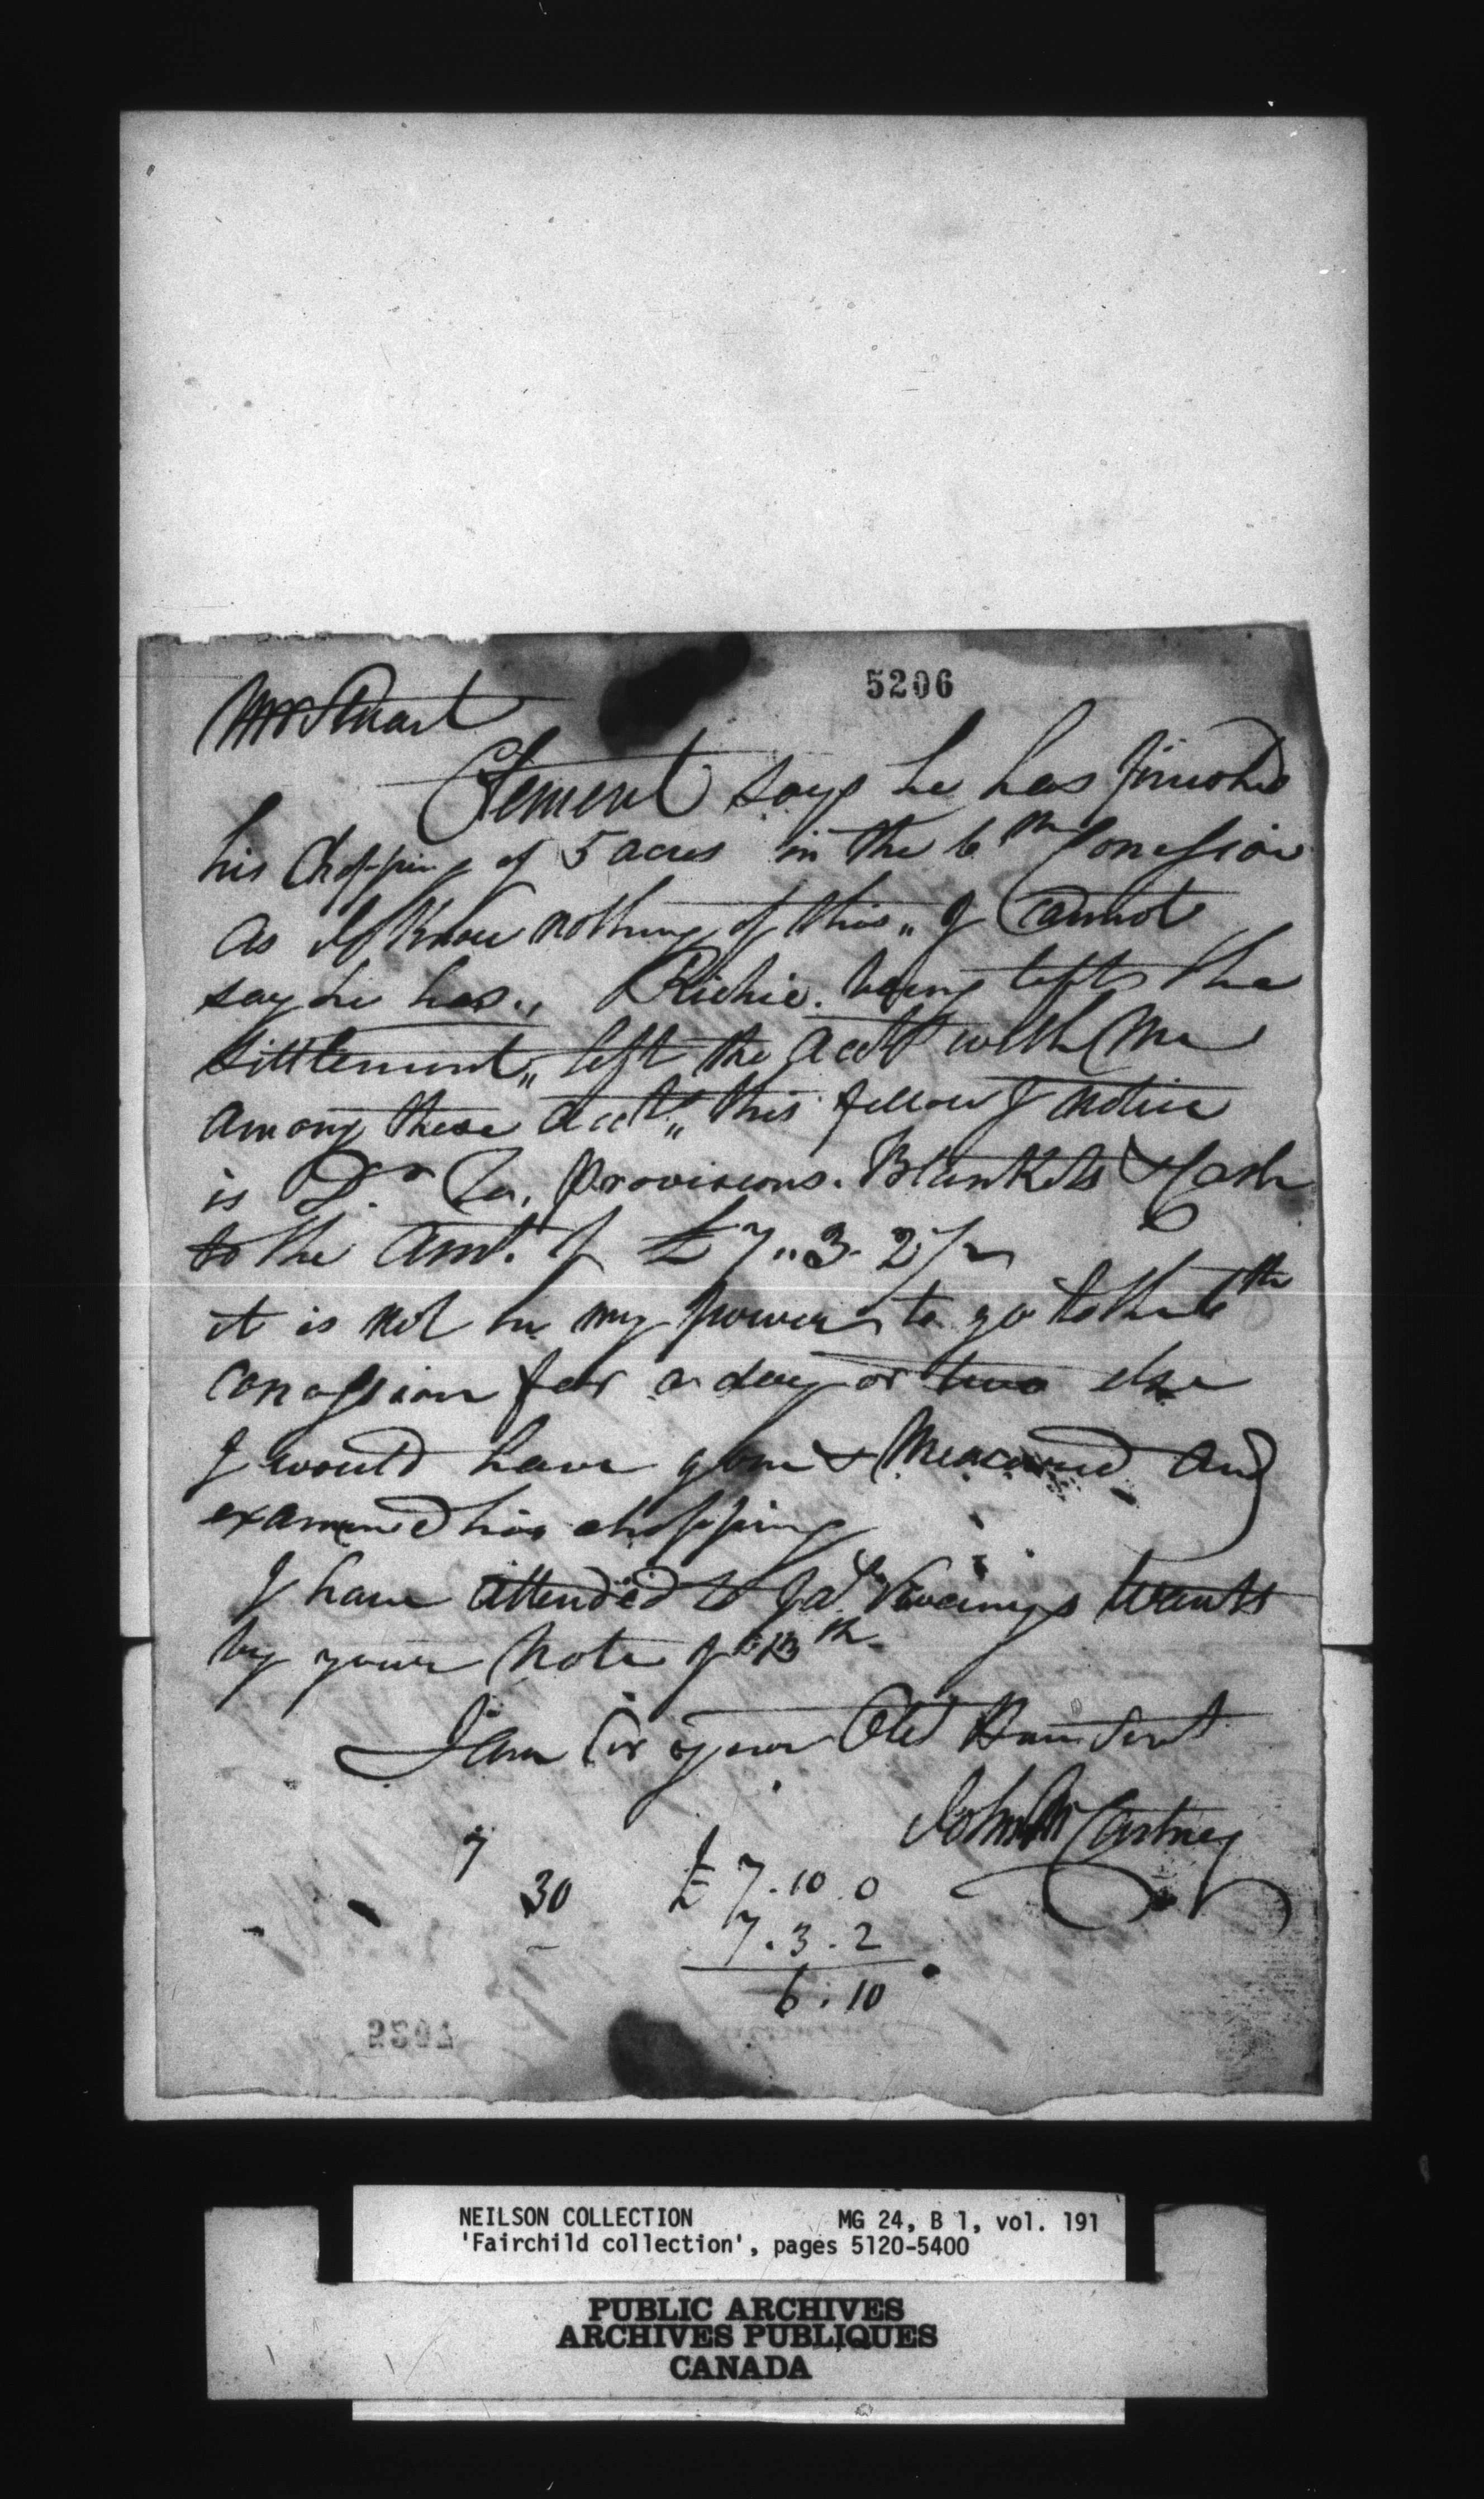 5206
Mr Stuart
Clement says he has finished
his Chopping of 5 acres in the 6th Conession
as I Know nothing of this,, I Cannot
say he has,, Richie. having left the
Sittlement,, left the acct with me
among these acct,, this fellow I notice
is Dr To, provisions. Blankets & Cash
to the amt. of £7,,3-2/
it is not in my power to go to the 6th
conession for a day or two else
I would have gone & Measured and
examined his chopping
I have attended to wants
by your Note of 13th
I am Sir your Obt Hum Servt
John McCartney
7
30 £7.10.0
7.3.2
6.10
5207
NEILSON COLLECTION MG 24, B 1, vol. 191
'Fairchild collection', pages 5120-5400
PUBLIC ARCHIVES
ARCHIVES PUBLIQUES
CANADA